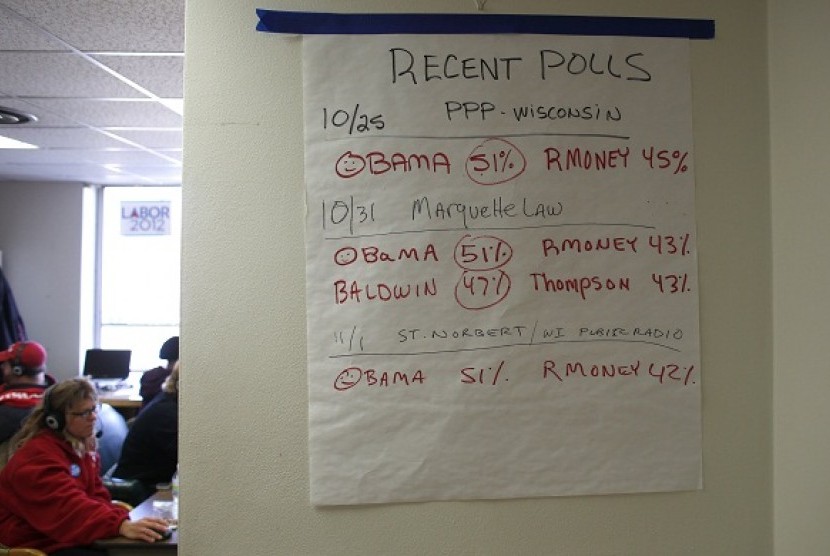 RECENT POLLS
10/25 PPP - WISCONSIN
OBAMA 51% RMONEY 45%
10/31 Marquette Law
OBAMA 51% RMONEY 43%
BALDWIN 47% Thompson 43%
11/1 ST. NORBERT / WI PUBLIC RADIO
OBAMA 51% RMONEY 42%
LABOR
2012